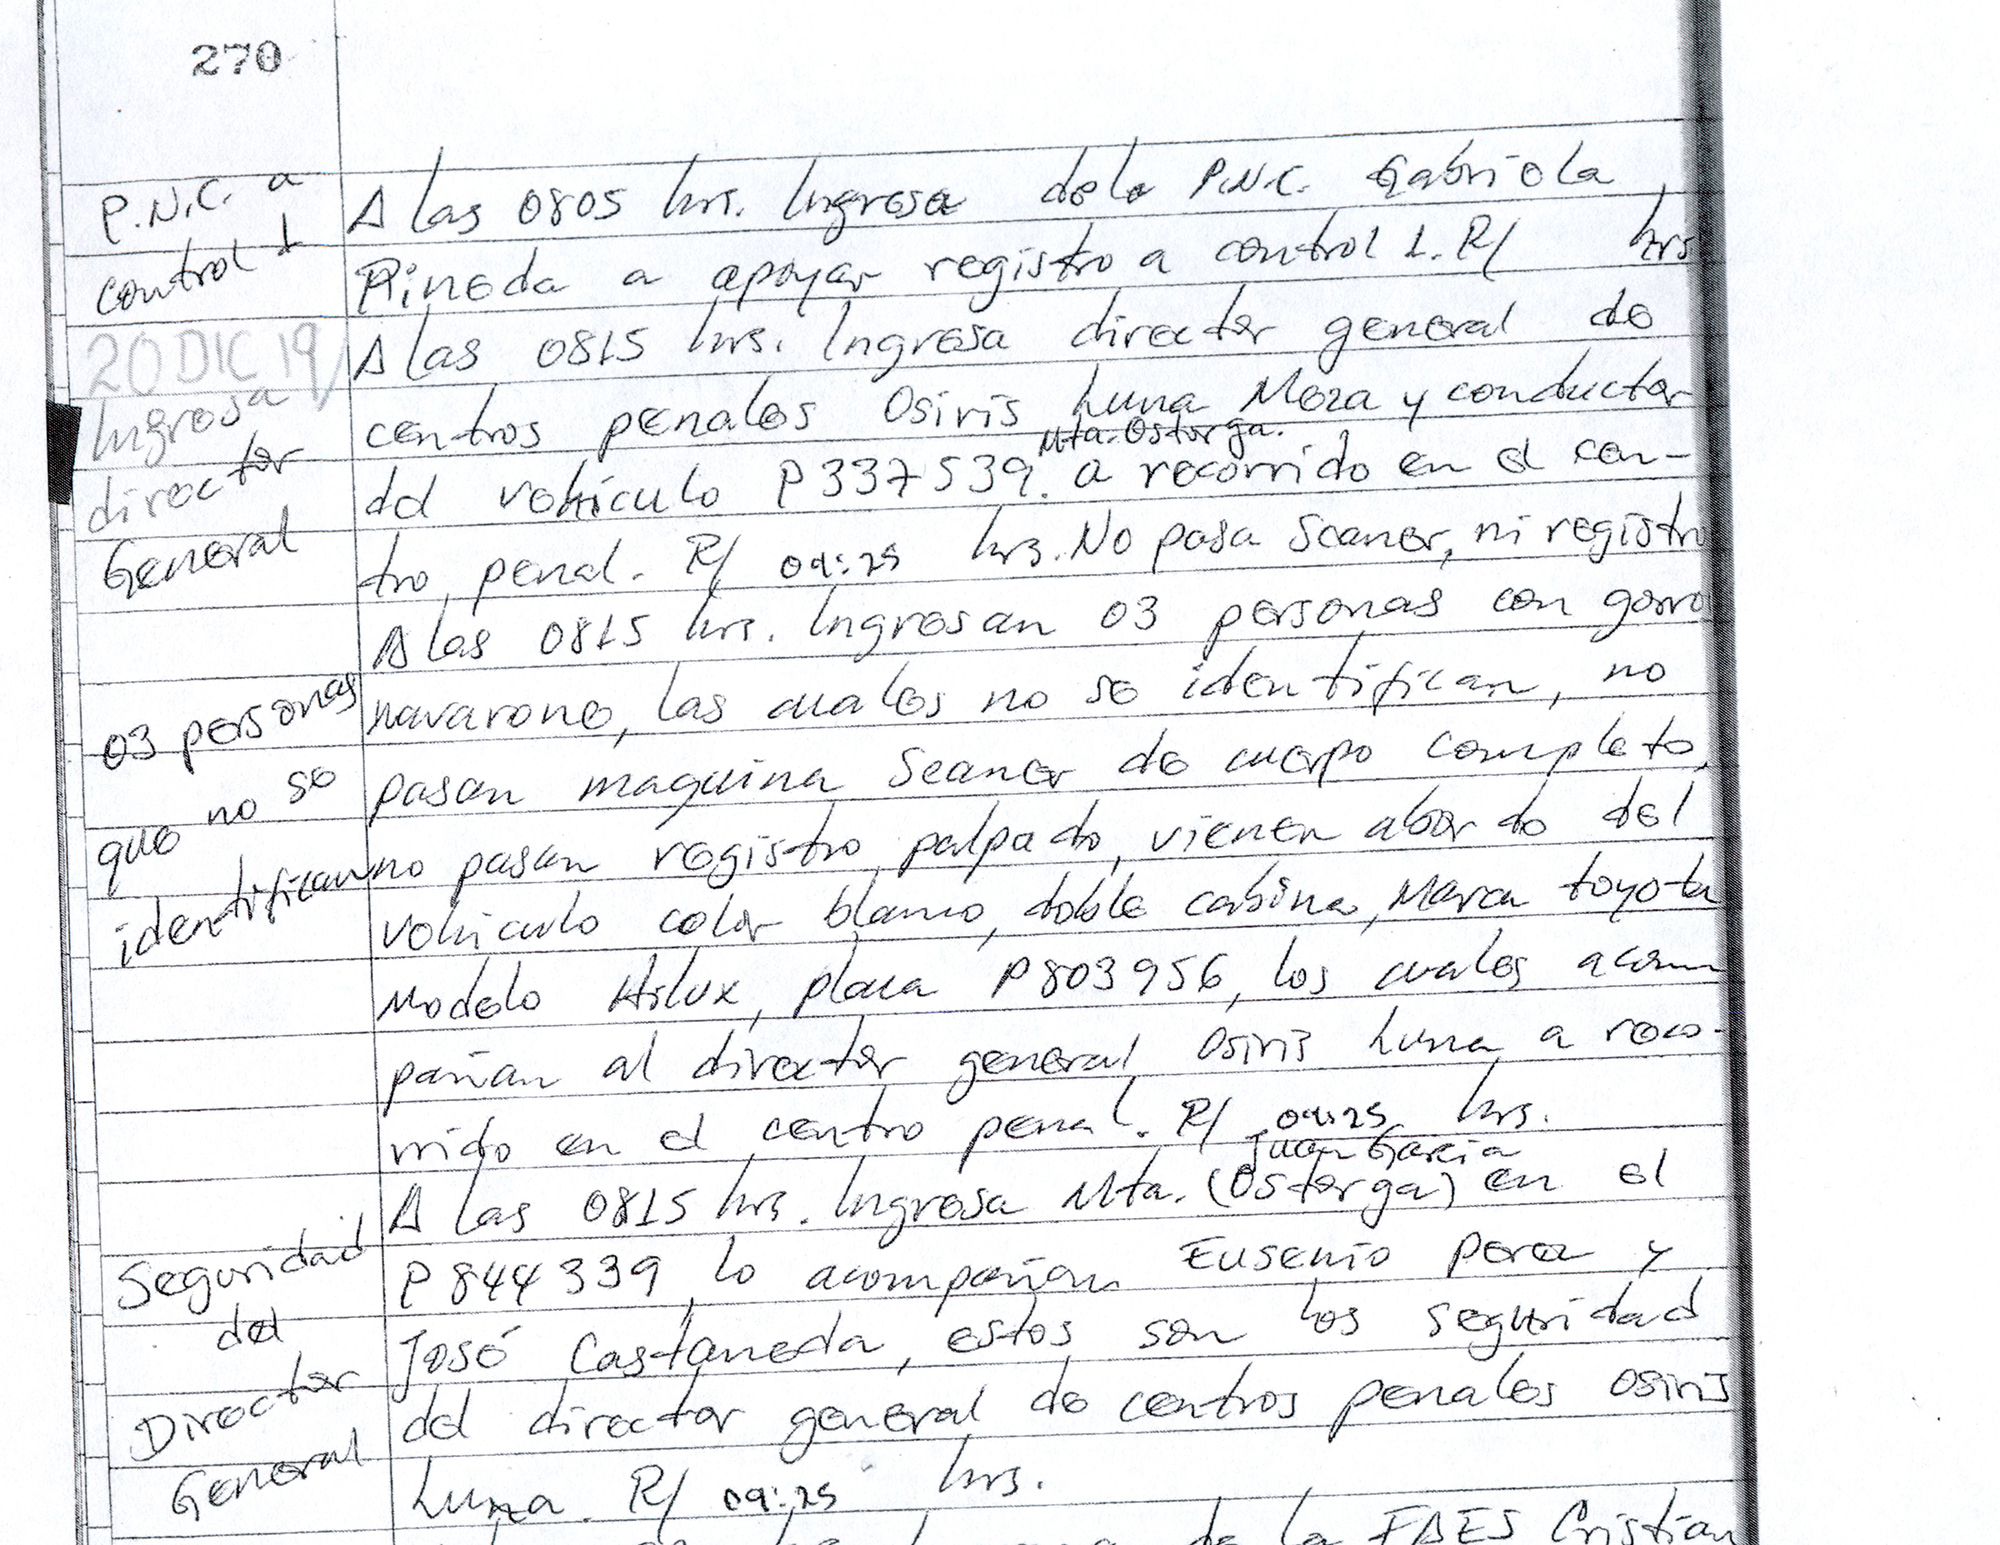 270
P.N.C. a
control 1
20 DIC 19
Ingresa
director
General
03 personas
que no se
identifican
Seguridad
del
Director
General
A las 0805 hrs. Ingresa dela P.N.C. Gabriela
Pineda a apoyar registro a control 1. R/ hrs
A las 0815 hrs. Ingresa director general de
centros penales Osiris Luna Meza y conductor
Mta. Ostorga.
del vehículo P337539. a recorrido en el cen-
tro penal. R/ 09:25 hrs. No pasa Scaner, ni registro
A las 0815 hrs. Ingresan 03 personas con gorro
navarone, las cuales no se identifican, no
pasan maquina Scaner de cuerpo completo,
no pasan registro palpado, vienen abordo del
vehiculo color blanco, doble cabina, Marca toyota
Modelo Hilux, placa P803956, los cuales acom
pañan al director general Osiris Luna a reco-
rrido en el centro penal. R/ 09:25 hrs.
Juan Garcia
A las 0815 hrs. Ingresa Mta. (Ostorga) en el
P844339 lo acompañan Eusenio Perez y
José Castaneda, estos son los seguridad
del director general de centros penales Osiris
Luna. R/ 09:25 hrs.
de la FAES Cristian